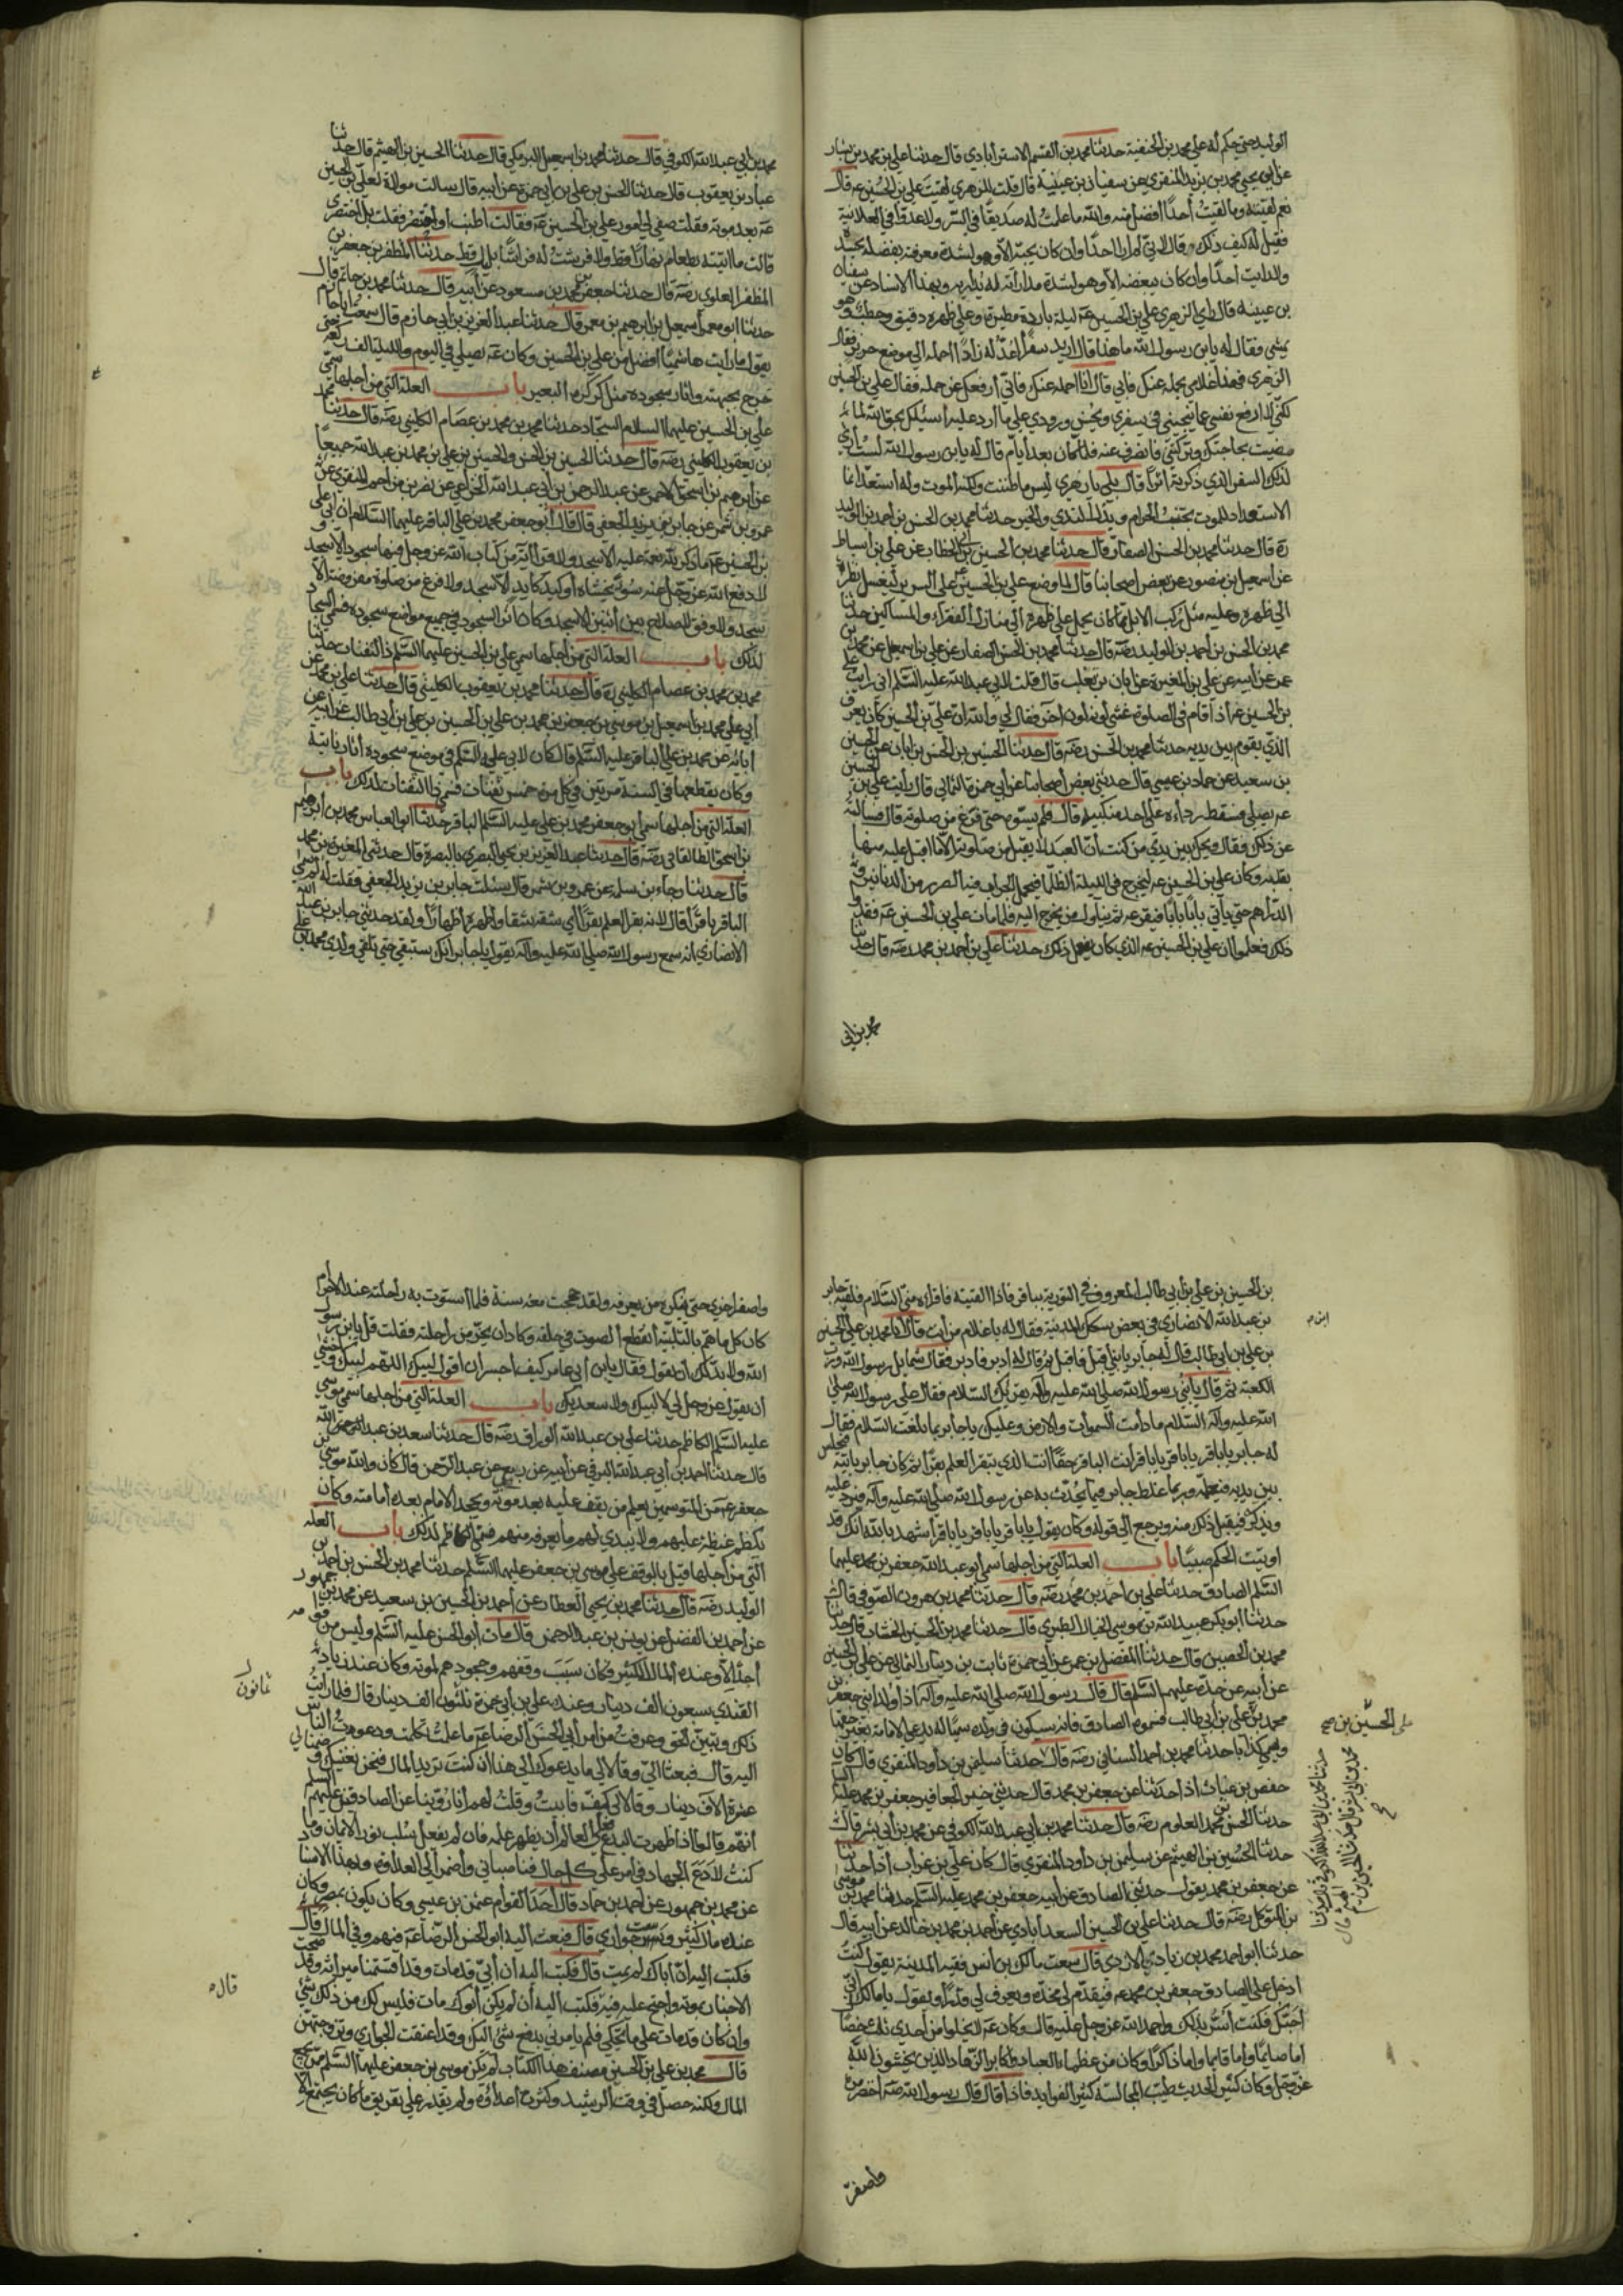 الوليد حتى حكم له على محمد بن الحنفية حدثنا محمد بن القسم الاسترابادى قال حدثنا على بن محمد بن سيار
عن ابى يحيى محمد بن يزيد المنقرى عن سفيان بن عيينة قال قلت للزهرى لقيت على بن الحسين عه قال
نعم لقيته وما لقيت أحدا افضل منه والله ما علمت له صديقا فى السر ولا عدوا فى العلانية
فقيل له كيف ذلك قال لانى لم ار احدا وان كان يحبه الا وهو لشدة معرفته بفضله يحسده
ولا رايت احدا وان كان يبغضه الا وهو لشدة مداراته له يداريه وبهذا الاسناد عن سفيان
بن عيينه قال راى الزهرى على بن الحسين عه ليلة باردة مطيرة وعلى ظهره دقيق وحطب وهو
يمشى فقال له يابن رسول الله ما هذا قال اريد سفرا اعد له زادا احمله الى موضع حريز فقال
الزهرى فهذا غلامى يحمله عنك فابى قال انا احمله عنك فانى ارفعك عن حمله فقال على بن الحسين
لكنى لا ارفع نفسى عما ينجينى فى سفرى ويحسن ورودى على ما ارد عليه اسئلك بحق الله لما
مضيت بحاجتك وتركتنى فانصرف عنه فلما كان بعد ايام قال له يابن رسول الله لست ارى
لذلك السفر الذى ذكرته اثرا قال بلى يا زهرى ليس ما ظننت ولكنه الموت وله استعد انما
الاستعداد للموت تجنب الحرام وبذل الندى والخير حدثنا محمد بن الحسن بن احمد بن الوليد
ره قال حدثنا محمد بن الحسن الصفار قال حدثنا محمد بن الحسين بن ابى الخطاب عن على بن اسباط
عن اسمعيل بن منصور عن بعض اصحابنا قال لما وضع على بن الحسين عه على السرير ليغسل نظر
الى ظهره وعليه مثل ركب الابل مما كان يحمل على ظهره الى منازل الفقراء والمساكين حدثنا
محمد بن الحسن بن أحمد بن الوليد رضه قال حدثنا محمد بن الحسن الصفار عن على بن اسمعيل عن محمد بن
عمر عن ابيه عن على بن المغيرة عن ابان بن تغلب قال قلت لابى عبد الله عليه السلم انى رايت على
بن الحسين عه اذا قام فى الصلوة غشى لونه لون اخر فقال لى والله ان على بن الحسين كان يعرف
الذى يقوم بين يديه حدثنا محمد بن الحسن رضه قال حدثنا الحسين بن الحسن بن ابان عن الحسين
بن سعيد عن حماد بن عيسى قال حدثنى بعض أصحابنا عن ابى حمزة الثمالى قال رايت على بن الحسين
عه يصلى فسقط رداءه على احد منكبيه قال فلم يسوه حتى فرغ من صلوته قال فسالته
عن ذلك فقال ويحك بين يدى من كنت ان العبد لا يقبل من صلوته الا ما اقبل عليه منها
بقلبه وكان على بن الحسين عه ليخرج فى الليلة الظلماء فيحمل الجراب فيه الصرر من الدنانير و
الدراهم حتى ياتى بابا بابا فيقرعه ثم يناول من يخرج اليه فلما مات على بن الحسين عه فقدوا
ذلك فعلموا ان على بن الحسين عه الذى كان يفعل ذلك حدثنا على بن احمد بن محمد رضه قال حدثنا
محمد بن ابى
محمد بن أبى عبد الله الكوفى قال حدثنا محمد بن اسمعيل البرمكى قال حدثنا الحسين بن الهيثم قال حدثنا
عباد بن يعقوب قال حدثنا الحسن بن على بن ابى حمزة عن ابيه قال سالت مولاة لعلى بن الحسين
عه بعد موته فقلت صفى لى امور على بن الحسين عه فقالت اطنب او اختصر فقلت بل اختصرى
قالت ما اتيته بطعام نهارا قط ولا فرشت له فراشا بليل قط حدثنا المظفر بن جعفر بن
المظفر العلوى رضه قال حدثنا جعفر بن محمد بن مسعود عن ابيه قال حدثنا محمد بن حاتم قال
حدثنا ابو معمر اسمعيل بن ابرهيم بن معمر قال حدثنا عبد العزيز بن ابى حازم قال سمعت ابا حازم
يقول ما رايت هاشميا افضل من على بن الحسين وكان عه يصلى فى اليوم والليلة الف ركعة حتى
خرج بجبهته واثار سجوده مثل كركرة البعير باب العلة التى من اجلها سمى
على بن الحسين عليهما السلام السجاد حدثنا محمد بن محمد بن عصام الكلينى رضه قال حدثنا محمد
بن يعقوب الكلينى رضه قال حدثنا الحسين بن الحسن والحسين بن على بن محمد بن عبد الله جميعا
عن ابرهيم بن اسحق الاحمر عن عبد الرحمن بن أبى عبد الله الخزاعى عن نصر بن مزاحم المنقرى عن
عمرو بن شمر عن جابر بن يزيد الجعفى قال قال أبو جعفر محمد بن على الباقر عليهما السلام ان ابى على
بن الحسين عه ما ذكر لله نعمة عليه الا سجد ولا قرا اية من كتاب الله عز وجل فيها سجود الا سجد و
لا دفع الله عز وجل عنه سوء يخشاه أو كيد كايد الا سجد ولا فرغ من صلوة مفروضة الا
سجد ولا وفق لاصلاح بين اثنين الا سجد وكان اثر السجود فى جميع مواضع سجوده فسمى السجاد
لذلك باب العلة التى من أجلها سمى على بن الحسين عليهما السلم ذا الثفنات حدثنا
محمد بن محمد بن عصام الكلينى ره قال حدثنا محمد بن يعقوب الكلينى قال حدثنا على بن محمد عن
أبى على محمد بن اسمعيل بن موسى بن جعفر بن محمد بن على بن الحسين بن على بن أبى طالب عن ابيه عن
ابائه عن محمد بن على الباقر عليه السلم قال كان لابى عليه السلم فى موضع سجوده اثار ناتية
وكان يقطعها فى السنة مرتين فى كل مرة خمس ثفنات فسمى ذا الثفنات لذلك باب
العلة التى من اجلها سمى ابو جعفر محمد بن على عليه السلم الباقر حدثنا ابو العباس محمد بن ابرهيم
بن اسحق الطالقانى رضه قال حدثنا عبد العزيز بن يحيى البصرى بالبصرة قال حدثنى المغيرة بن محمد
قال حدثنا رجاء بن سلمه عن عمرو بن شمر قال سئلت جابر بن يزيد الجعفى فقلت له لم سمى
الباقر باقرا قال لانه بقر العلم بقرا أى شقه شقا واظهره اظهارا ولقد حدثنى جابر بن عبد الله
الانصارى انه سمع رسول الله صلى الله عليه وآله يقول يا جابر انك ستبقى حتى تلقى ولدى محمد بن على
بن الحسين بن على بن أبى طالب المعروف فى التورية بباقر فاذا القيته فاقراه منى السلام فلقيه جابر
بن عبد الله الانصارى فى بعض سكك المدينة فقال له يا غلام من انت قال انا محمد بن على بن الحسين
بن على بن ابى طالب قال له جابر يا بنى أقبل فاقبل ثم قال له ادبر فادبر فقال شمايل رسول الله ورب
الكعبة ثم قال يا بنى رسول الله صلى الله عليه وآله يقرئك السلام فقال على رسول الله صلى
الله عليه وآله السلام ما دامت السموات والارض وعليك يا جابر بما بلغت السلام فقال
له جابر يا باقر يا باقر يا باقر أنت الباقر حقا انت الذى تبقر العلم بقرا ثم كان جابر ياتيه فيجلس
بين يديه فيعلمه وربما غلط جابر فيما يحدث به عن رسول الله صلى الله عليه وآله فيرد عليه
ويذكره فيقبل ذلك منه ويرجع الى قوله وكان يقول يا باقر يا باقر يا باقر اشهد بالله انك قد
اوتيت الحكم صبيا باب العلة التى من اجلها سمى أبو عبد الله جعفر بن محمد عليهما
السلم الصادق حدثنا على بن احمد بن محمد رضه قال حدثنا محمد بن هرون الصوفى قال
حدثنا أبو بكر عبيد الله بن موسى الخيال الطبرى قال حدثنا محمد بن الحسين الخشاب قال حدثنا
محمد بن الحصين قال حدثنا المفضل بن عمر عن أبى حمزة ثابت بن دينار الثمالى عن على بن الحسين
عن أبيه عن جده عليهم السلم قال قال رسول الله صلى الله عليه وآله اذا ولد ابنى جعفر بن
محمد بن على بن أبى طالب فسموه الصادق فانه سيكون فى ولده سمى له يدعى الامامة بغير حقها
ويسمى كذابا حدثنا محمد بن احمد السنانى رضه قال حدثنا سليمن بن داود المنقرى قال كان
حفص بن غياث اذا حدثنا عن جعفر بن محمد قال حدثنى خير الجعافر جعفر بن محمد عليه السلم
حدثنا الحسن بن محمد العلوى رضه قال حدثنا محمد بن ابى عبد الله الكوفى عن محمد بن أبى بشر قال
حدثنا الحسين بن الهيثم عن سليمن بن داود المنقرى قال كان على بن غراب اذا حدثنا
عن جعفر بن محمد يقول حدثنى الصادق عن الله جعفر بن محمد عليه السلم حدثنا محمد بن موسى
بن المتوكل رضه قال حدثنا على بن الحسين السعد ابادى عن أحمد بن محمد بن خالد عن أبيه قال
حدثنا ابو احمد محمد بن زياد الازدى قال سمعت مالك بن أنس فقيه المدينة يقول كنت
ادخل على الصادق جعفر بن محمد عه فيقدم لى مخدة ويعرف لى قدرا ويقول يا مالك انى
احبك فكنت أسر بذلك واحمد الله عز وجل عليه قال وكان عه لا يخلوا من أحدى ثلث خصال
اما صايما واما قايما واما ذاكرا وكان من عظماء العباد واكابر الزهاد الذين يخشون الله
عز وجل وكان كثير الحديث طيب المجالسة كثير الفوايد فاذا قال قال رسول الله صه اخضر مرة
واصفر
على الحسين بن صح
واصفر اخرى حتى ينكره من يعرفه ولقد حججت معه سنة فلما استوت به راحلته عند الاحرام
كان كلما هم بالتلبية انقطع الصوت فى حلقه وكاد ان يخر من راحلته فقلت قل يابن رسول
الله ولا بد لك ان تقول فقال يابن أبى عامر كيف اجسر ان اقول لبيك اللهم لبيك واخشى
أن يقول عز وجل لى لا لبيك ولا سعديك باب العلة التى من اجلها سمى موسى
عليه السلم الكاظم حدثنا على بن عبد الله الوراق رضه قال حدثنا سعد بن عبد الله
قال حدثنا احمد بن أبى عبد الله البرقى عن أبيه عن ربيع بن عبد الرحمن قال كان والله موسى بن
جعفر عه من المتوسمين يعلم من يقف عليه بعد موته ويجحد الامام بعده امامته وكان
يكظم غيظه عليهم ولا يبدى لهم ما يعرفه منهم فسمى الكاظم لذلك باب العله
التى من أجلها قيل بالوقف على موسى بن جعفر عليهما السلم حدثنا محمد بن الحسن بن احمد بن
الوليد رضه قال حدثنا محمد بن يحيى العطار عن أحمد بن الحسين بن سعيد عن محمد بن جمهور
عن احمد بن الفضل عن يونس بن عبد الرحمن قال مات أبو الحسن عليه السلم وليس من قوامه
احد الا وعنده المال الكثير فكان سبب وقفهم وجحودهم لموته وكان عند زياد
القندى سبعون الف دينار وعند على بن أبى حمزة ثلثون الف دينار قال فلما رايت
ثمانون
ذلك وتبين الحق وعرفت من امر أبى الحسن الرضا عه ما علمت تكلمت ودعوت الناس
اليه قال فبعثا الى وقالا لى ما يدعوك الى هذا ان كنت تريد المال فنحن نغنيك وضمنا لى
عشرة الاف دينار وقالا لى كف فابيت وقلت لهم انا روينا عن الصادقين عليهم السلم
أنهم قالوا اذا ظهرت البدع فعلى العالم أن يظهر علمه فان لم يفعل سلب نور الايمان وما
كنت لادع الجهاد فى امر الله على كل حال فناصبانى واضمرا لى العداوة وبهذا الاسناد
عن محمد بن جمهور عن احمد بن حماد قال أحد القوام عثمن بن عيسى وكان يكون بمصر وكان
عنده مال كثير وست جوارى قال فبعث اليه ابو الحسن الرضا عه فيهم وفى المال قال
فكتب اليه ان اباك لم يمت قال فكتب اليه ان أبى قد مات وقد اقتسمنا ميراثه وقد صحت
الاخبار بموته واحتج عليه فيه فكتب اليه أن لم يكن أبوك مات فليس لك من ذلك شئ
وان كان قد مات على ما تحكى فلم يامرنى بدفع شئ اليك وقد اعتقت الجوارى وتزوجتهن
قال محمد بن على بن الحسين مصنف هذا الكتاب لم يكن موسى بن جعفر عليهما السلم ممن يجمع
المال ولكنه حصل فى وقت الرشيد وكثرت اعداؤه ولم يقدر على تفريق ما كان يجتمع الا
قال